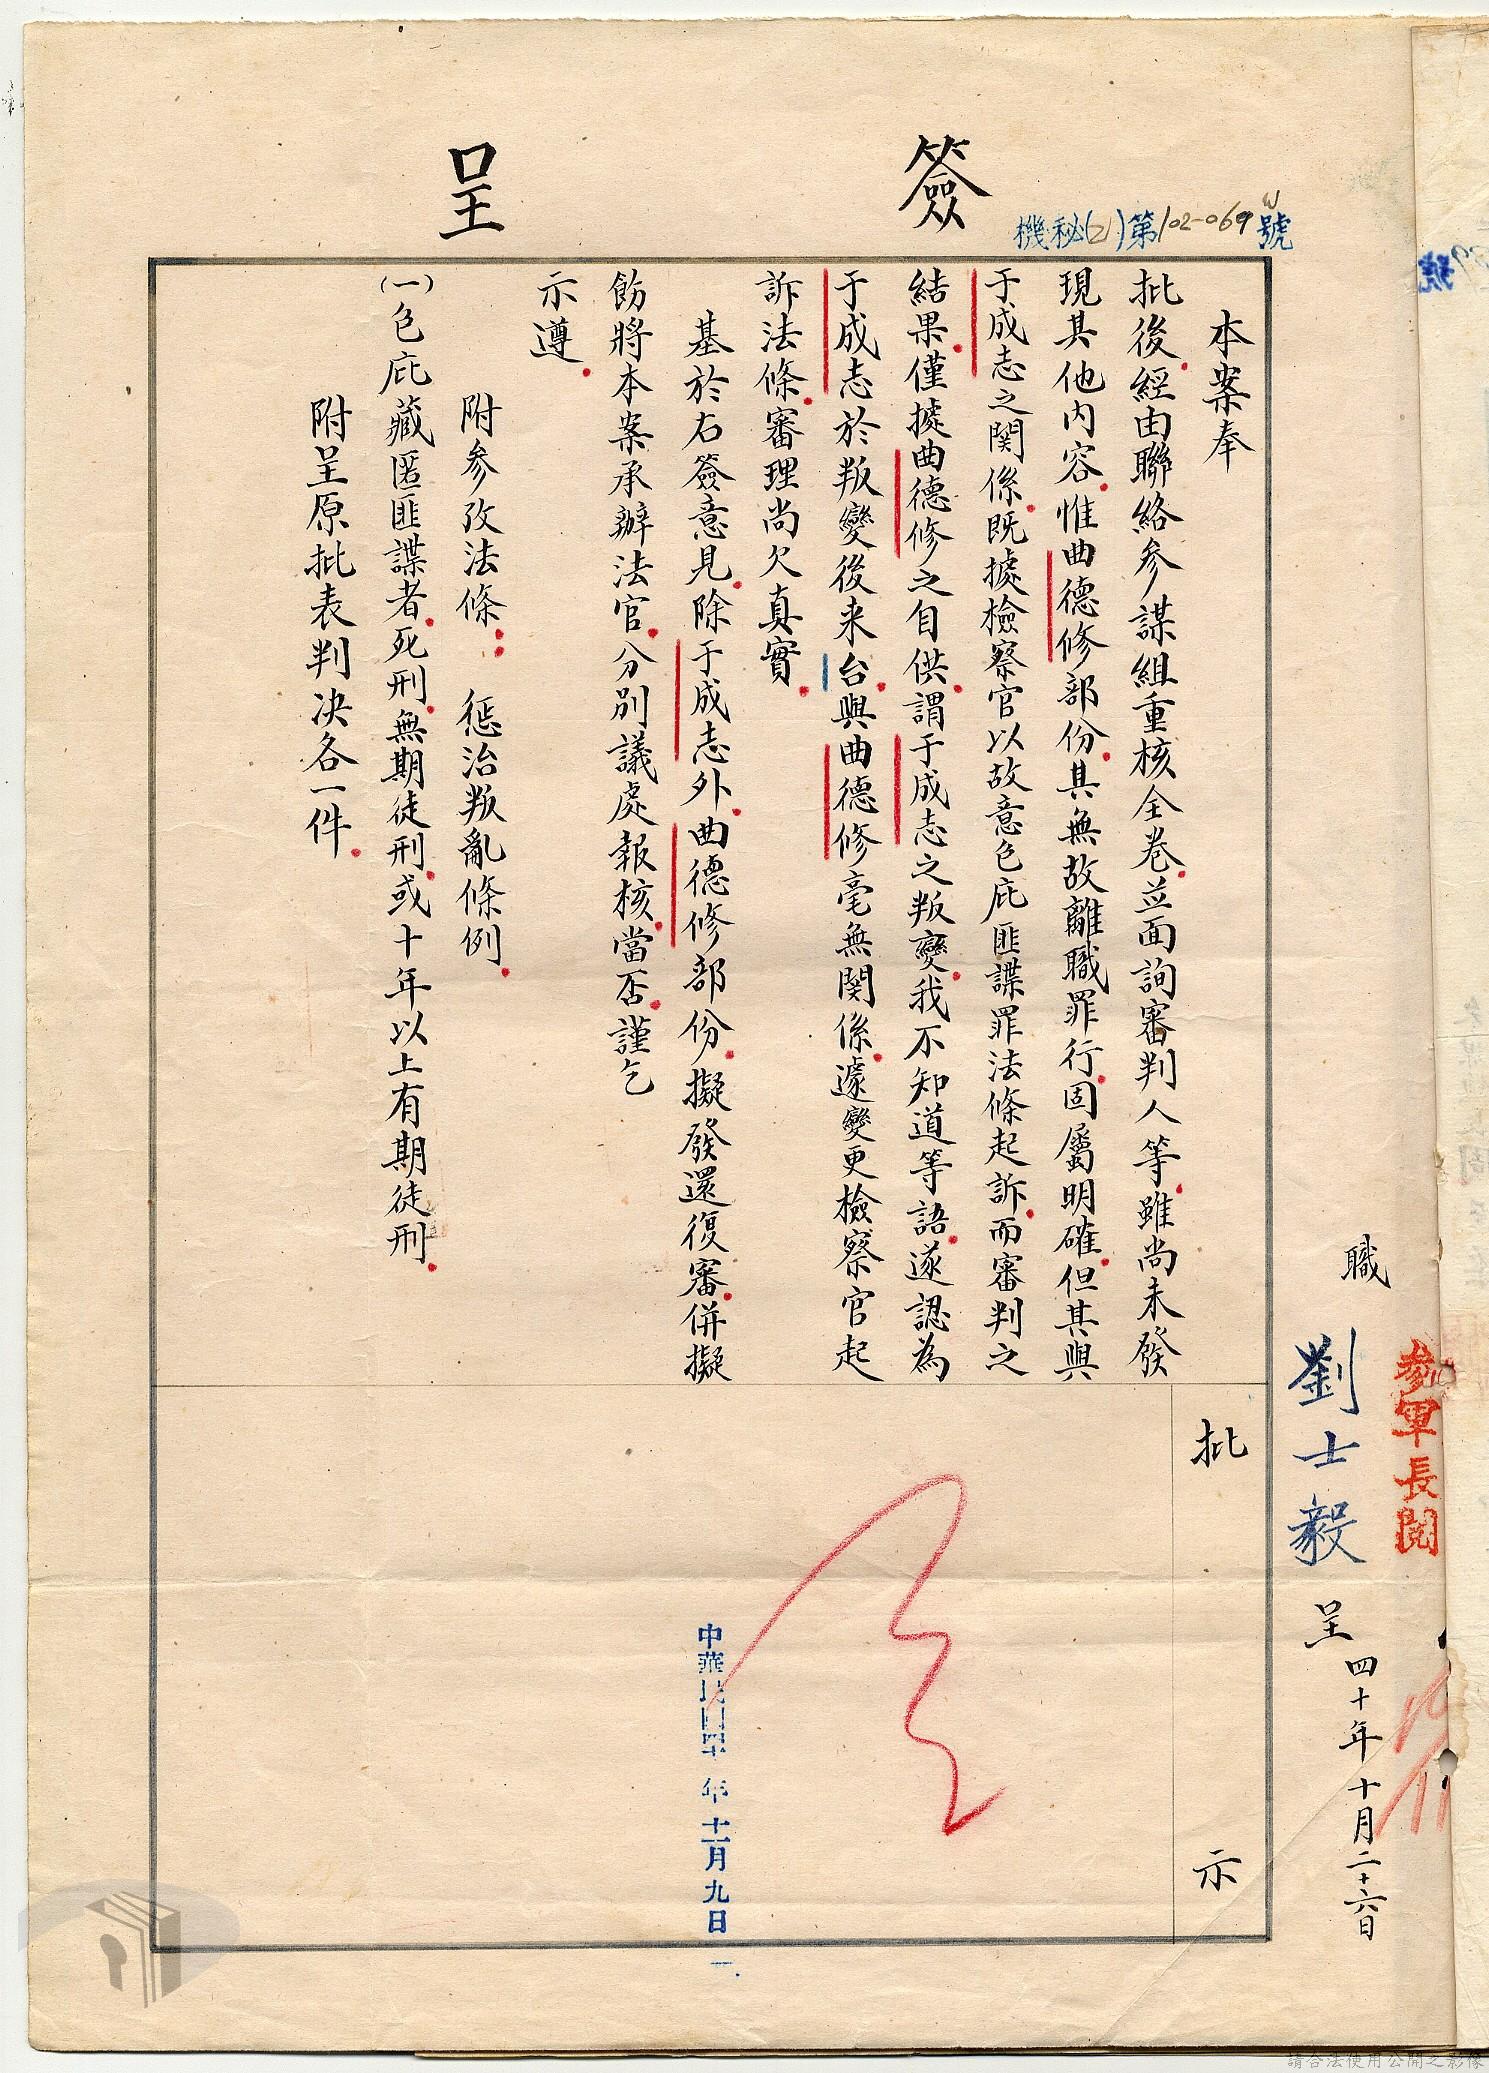 簽呈
機秘(乙)第102-069號
本案奉
批後．經由聯絡參謀組重核全卷．並面詢審判人等．雖尚未發
現其他內容．惟曲德修部份．其無故離職罪行．固屬明確．但其與
于成志之関係．既據檢察官以故意包庇匪諜罪法條起訴．而審判之
結果．僅據曲德修之自供．謂于成志之叛變．我不知道等語．遂認為
于成志於叛變後来台．與曲德修毫無関係．遽變更檢察官起
訴法條．審理尚欠真實．
基於右簽意見．除于成志外．曲德修部份．擬發還復審．併擬
飭將本案承辦法官．分別議處報核．當否．謹乞
示遵．
附參攷法條：懲治叛亂條例．
(一)包庇藏匿匪諜者．死刑．無期徒刑．或十年以上有期徒刑．
附呈原批表判决各一件．
批示
中華民國四十年十一月九日
職
劉士毅
呈
四十年十月二十六日
參軍長閱
號
請合法使用公開之影像